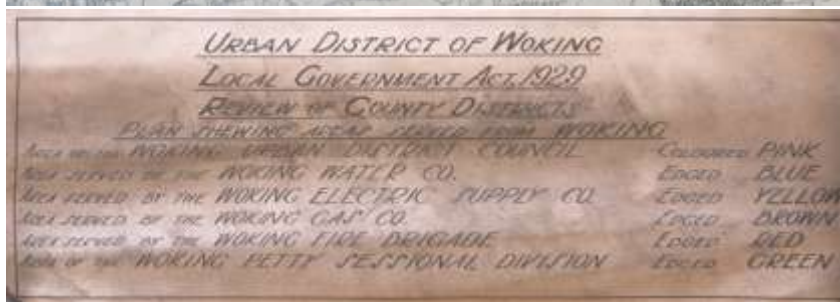 URBAN DISTRICT OF WOKING
LOCAL GOVERNMENT ACT, 1929
REVIEW OF COUNTY DISTRICTS
PLAN SHEWING AREAS SERVED FROM WOKING
WOKING URBAN DISTRICT COUNCIL COLOURED PINK
AREA SERVED BY THE WOKING WATER CO. EDGED BLUE
AREA SERVED BY THE WOKING ELECTRIC SUPPLY CO. EDGED YELLOW
AREA SERVED BY THE WOKING GAS CO. EDGED BROWN
AREA SERVED BY THE WOKING FIRE BRIGADE EDGED RED
AREA OF THE WOKING PETTY SESSIONAL DIVISION EDGED GREEN